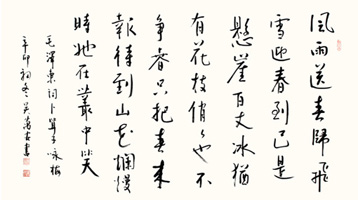 風雨送春歸飛
雪迎春到已是
懸崖百丈冰猶
有花枝俏々也不
争春只把春来
報待到山花爛慢
時她在叢中笑
毛澤東詞卜算子咏梅
辛卯初冬吴書